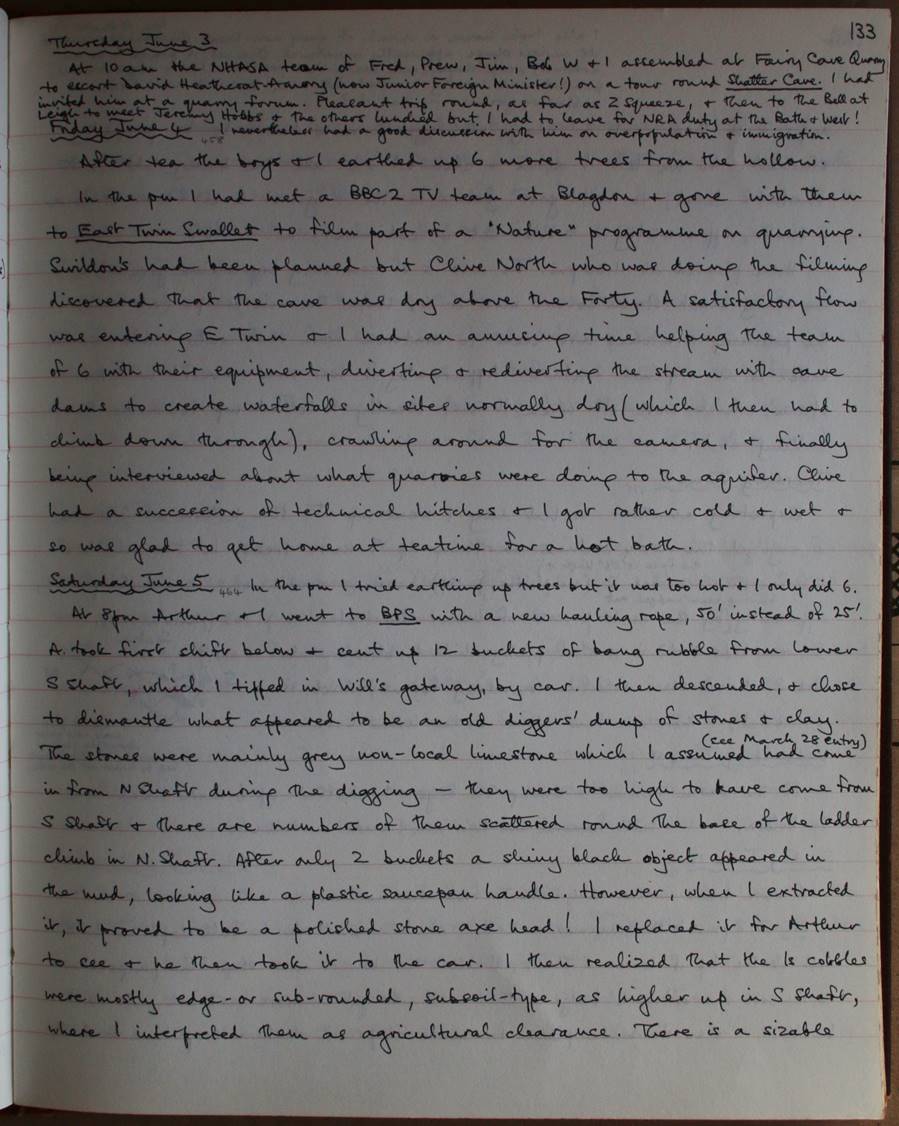 133
Thursday June 3
At 10 am the NHASA team of Fred, Prew, Jim, Bob W & I assembled at Fairy Cave Quarry
to escort David Heathcoat-Amory (now Junior Foreign Minister!) on a tour round Shatter Cave. I had
invited him at a quarry forum. Pleasant trip round, as far as Z Squeeze, & then to the Bell at
Leigh to meet Jeremy Hobbs & the others lunched but I had to leave for NRA duty at the Bath & West!
Friday June 4 458 I nevertheless had a good discussion with him on overpopulation & immigration.
After tea the boys & I earthed up 6 more trees from the hollow.
In the pm I had met a BBC2 TV team at Blagdon & gone with them
to East Twin Swallet to film part of a "Nature" programme on quarrying.
Swildon's had been planned but Clive North who was doing the filming
discovered that the cave was dry above the Forty. A satisfactory flow
was entering E Twin & I had an amusing time helping the team
of 6 with their equipment, diverting & rediverting the stream with cave
dams to create waterfalls in sites normally dry (which I then had to
climb down through), crawling around for the camera, & finally
being interviewed about what quarries were doing to the aquifer. Clive
had a succession of technical hitches & I got rather cold & wet &
so was glad to get home at teatime for a hot bath.
Saturday June 5 464 In the pm I tried earthing up trees but it was too hot & I only did 6.
At 8pm Arthur & I went to BPS with a new hauling rope, 50' instead of 25'.
A. took first shift below & sent up 12 buckets of bang rubble from lower
S Shaft, which I tipped in Will's gateway, by car. I then descended, & chose
to dismantle what appeared to be an old diggers' dump of stones & clay.
(see March 28 entry)
The stones were mainly grey non-local limestone which I assumed had come
in from N Shaft during the digging — they were too high to have come from
S Shaft & there are numbers of them scattered round the base of the ladder
climb in N. Shaft. After only 2 buckets a shiny black object appeared in
the mud, looking like a plastic saucepan handle. However, when I extracted
it, it proved to be a polished stone axe head! I replaced it for Arthur
to see & he then took it to the car. I then realized that the ls cobbles
were mostly edge- or sub-rounded, subsoil-type, as higher up in S Shaft,
where I interpreted them as agricultural clearance. There is a sizable